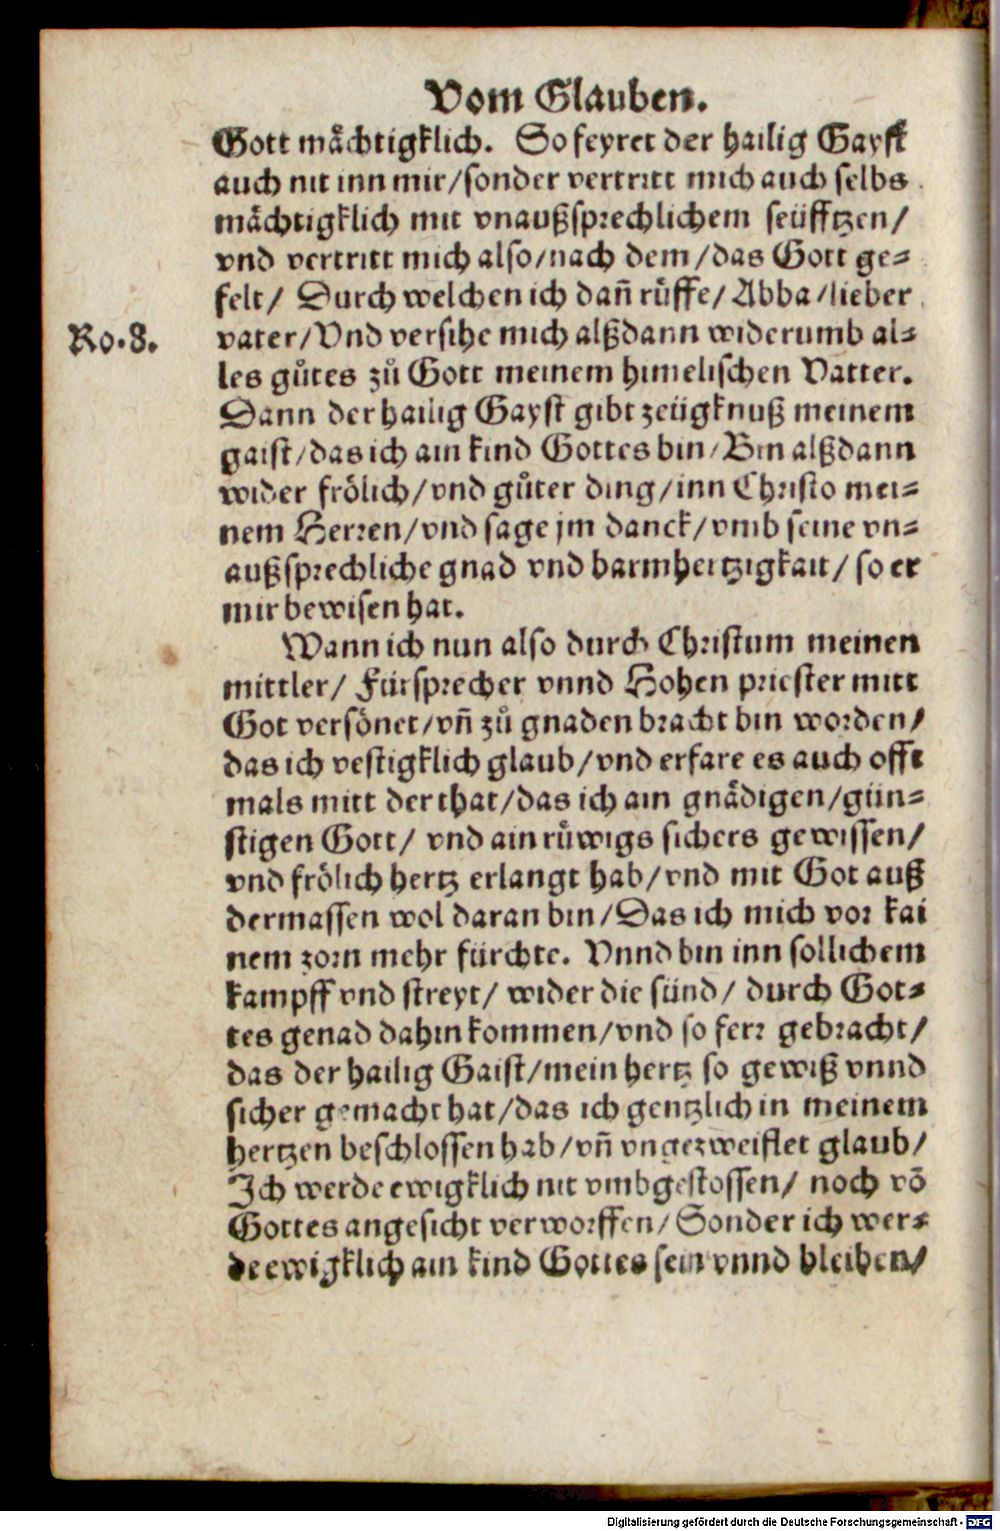 Vom Glauben.
Gott mächtigklich. So feyret der hailig Gayst
auch nit inn mir/sonder vertritt mich auch selbs
mächtigklich mit vnaußsprechlichem seüfftzen/
vnd vertritt mich also/nach dem/das Gott ge⸗
felt/ Durch welchen ich dañ rüffe/ Abba/lieber
Ro.8.
vater/Vnd versihe mich alßdann widerumb al⸗
les gůtes zů Gott meinem himelischen Vatter.
Dann der hailig Gayst gibt zeügknuß meinem
gaist/das ich ain kind Gottes bin/Bin alßdann
wider frölich/vnd gůter ding/inn Christo mei⸗
nem Herren/vnd sage jm danck/vmb seine vn⸗
außsprechliche gnad vnd barmhertzigkait/ so er
mir bewisen hat.
Wann ich nun also durch Christum meinen
mittler/ Fürsprecher vnnd Hohen priester mitt
Got versönet/vñ zů gnaden bracht bin worden/
das ich vestigklich glaub/vnd erfare es auch offt
mals mitt der that/das ich ain gnädigen/gün⸗
stigen Gott/ vnd ain rüwigs sichers gewissen/
vnd frölich hertz erlangt hab/vnd mit Got auß
dermassen wol daran bin/Das ich mich vor kai
nem zorn mehr fürchte. Vnnd bin inn sollichem
kampff vnd streyt/ wider die sünd/ durch Got⸗
tes genad dahin kommen/vnd so ferr gebracht/
das der hailig Gaist/mein hertz so gewiß vnnd
sicher gemacht hat/das ich gentzlich in meinem
hertzen beschlossen hab/vñ vngezweiflet glaub/
Ich werde ewigklich nit vmbgestossen/ noch võ
Gottes angesicht verworffen/Sonder ich wer⸗
de ewigklich ain kind Gottes sein vnnd bleiben/
Digitalisierung gefördert durch die Deutsche Forschungsgemeinschaft - DFG